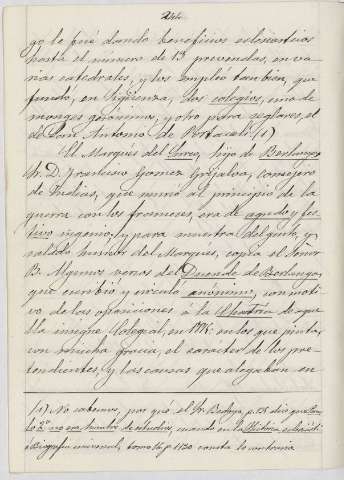 244
go le fué dando beneficios eclesiásticos
hasta el número de 13 prevendas, en va-
rias catedrales, y los empleó tambien, que
fundó, en Sigüenza, dos colegios, uno de
monges gerónimos, y otro para seglares, el
de San Antonio de Portaceli (1)
El Marqués del hijo de Berlanga
Sr. D. Francisco Gomez Grijalva, Consejero
de Indias, que murió al principio de la
guerra con los franceses, era de agudo y fes-
tivo ingenio. Y para muestra del gusto, y
salado humor del Marqués, copia el Señor
B. algunos versos del Duende de Berlanga,
que escribió, y circuló anónimo, con moti-
vo de las oposiciones á la de aque-
lla insigne Colegial, en en los que pinta,
con mucha gracia, el caracter de los pre-
tendientes, y las causas que alegaban en
(1) No sabemos, por qué el Sr. p. dice que
no era hombre de estudios, cuando en la
Biografia universal, tomo p. 1130 consta lo contrario